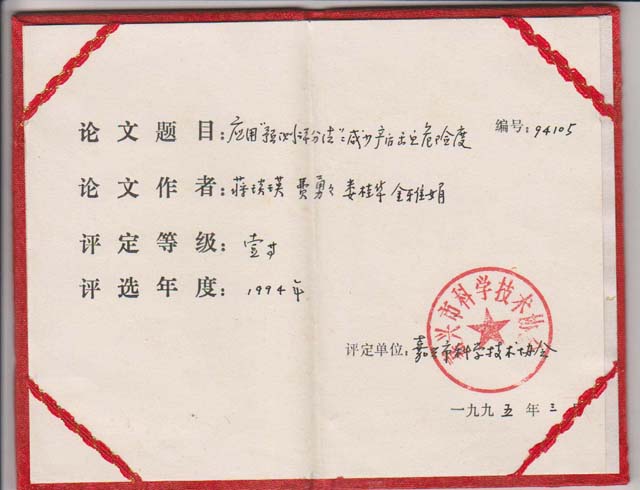 编号:94105
论文题目:应用"预测评分法"减少产后出血危险度
论文作者:蒋琰瑛 费勇 娄桂华 金雅娟
评定等级:壹等
评选年度:1994年
嘉兴市科学技术协会
评定单位:嘉兴市科学技术协会
一九九五年三